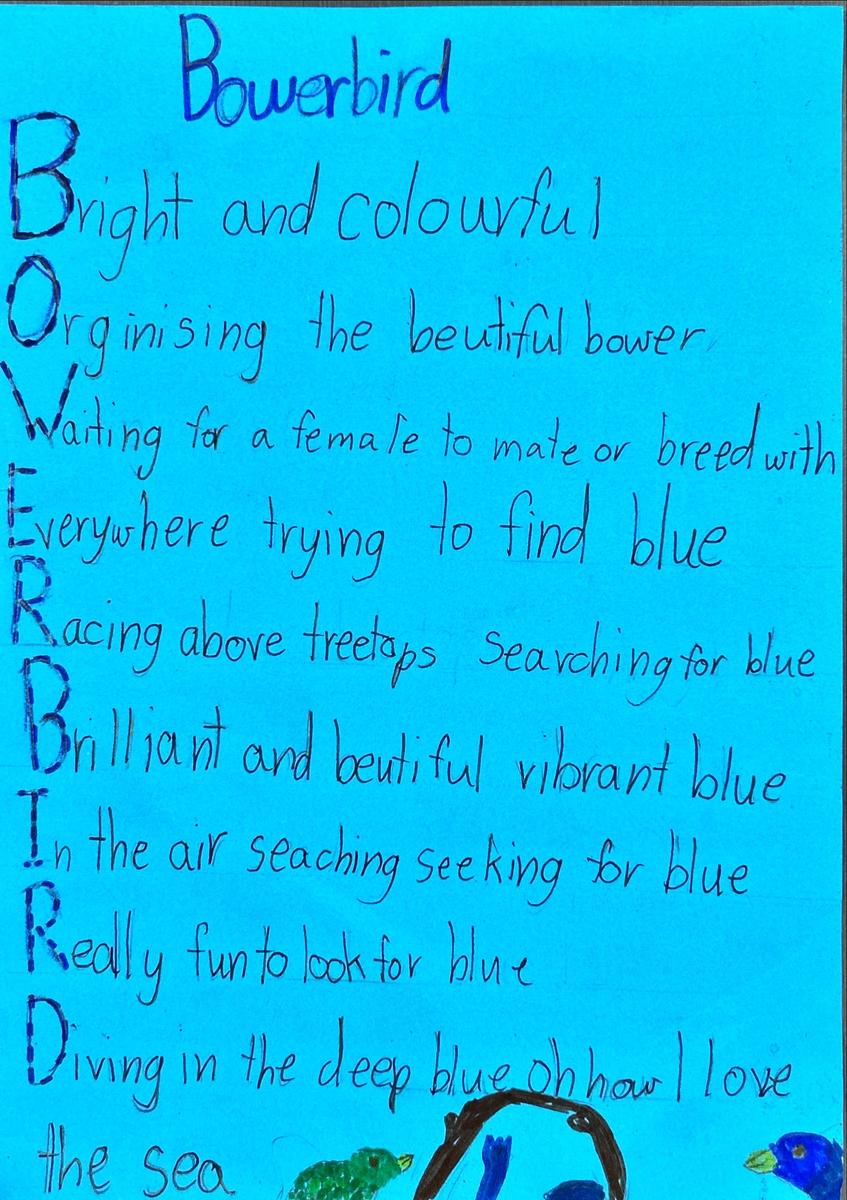 Bowerbird
Bright and colourful
Orginising the beutiful bower
Waiting for a female to mate or breed with
Everywhere trying to find blue
Racing above treetops searching for blue
Brilliant and beutiful vibrant blue
In the air seaching seeking for blue
Really fun to look for blue
Diving in the deep blue oh how I love
the sea